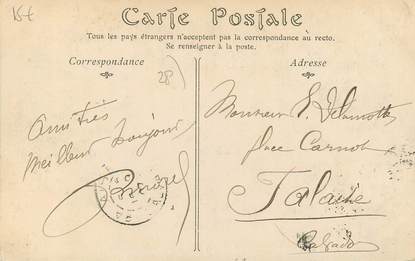 15€
Carte Postale
Tous les pays étrangers n'acceptent pas la correspondance au recto.
Se renseigner à la poste.
Correspondance
28
Amitiés
meilleurs toujours
Adresse
Monsieur E. Delamotte
place Carnot
Falaise
Calvados